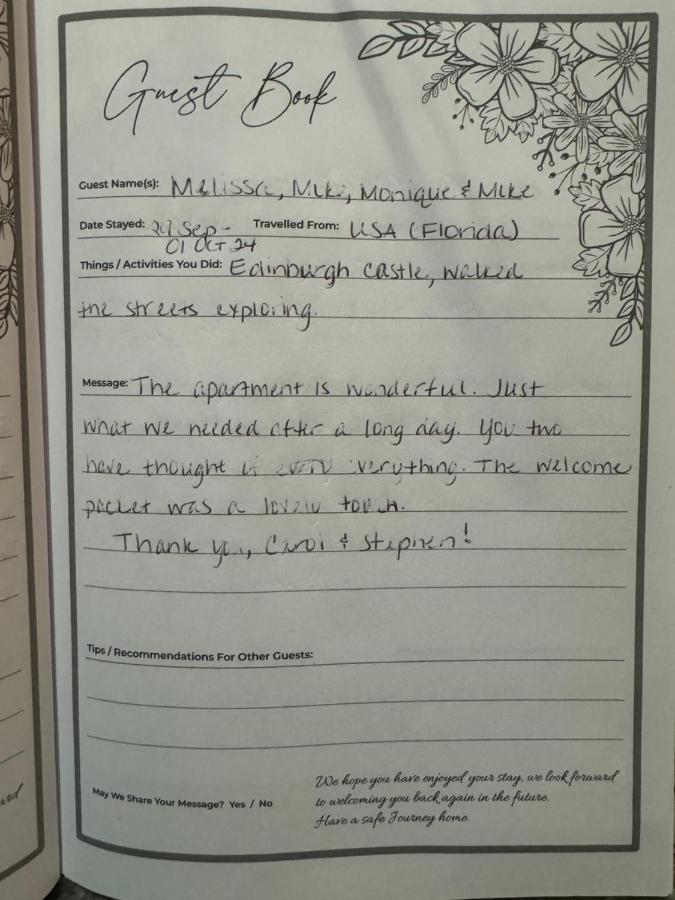 Guest Book
Guest Name(s): Melissa, Mike, Monique & Mike
Date Stayed: Sep - Travelled From: USA (Florida)
01 Oct 24
Things / Activities You Did: Edinburgh Castle, walked
the streets exploring.
Message: The apartment is wonderful. Just
what we needed after a long day. You two
have thought of everything. The welcome
packet was a lovely touch.
Thank you, Carol & Stephen!
Tips / Recommendations For Other Guests:
May We Share Your Message? Yes / No
We hope you have enjoyed your stay, we look forward
to welcoming you back again in the future.
Have a safe Journey home.